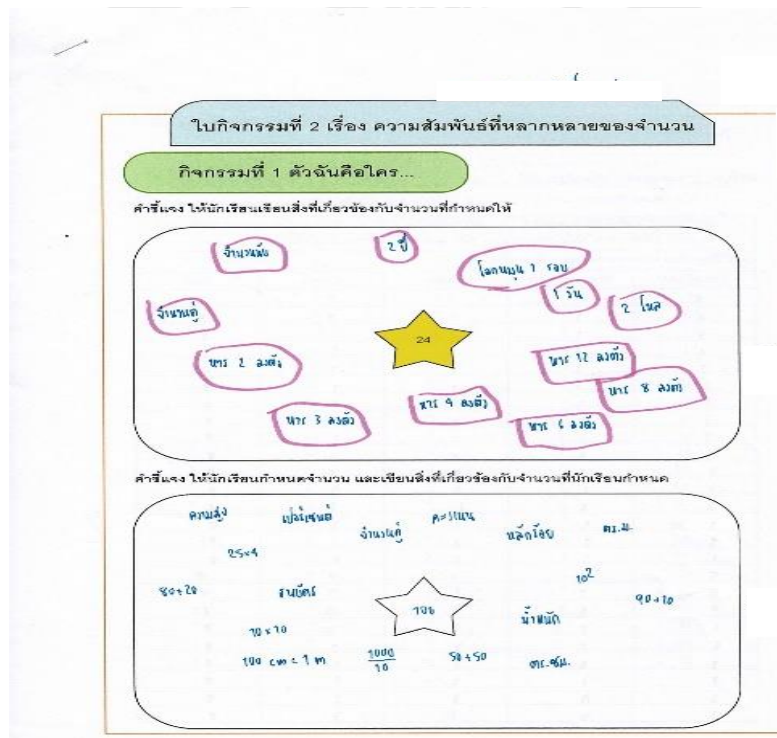 ใบกิจกรรมที่ 2 เรื่อง ความสัมพันธ์ที่หลากหลายของจำนวน
กิจกรรมที่ 1 ตัวฉันคือใคร...
คำชี้แจง ให้นักเรียนเขียนสิ่งที่เกี่ยวข้องกับจำนวนที่กำหนดให้
จำนวนนับ
2 ปี
โลกหมุน 1 รอบ
1 วัน
2 โหล
จำนวนคู่
24
หาร 2 ลงตัว
หาร 12 ลงตัว
หาร 8 ลงตัว
หาร 4 ลงตัว
หาร 3 ลงตัว
หาร 6 ลงตัว
คำชี้แจง ให้นักเรียนกำหนดจำนวน และเขียนสิ่งที่เกี่ยวข้องกับจำนวนที่นักเรียนกำหนด
ความสูง เปอร์เซนต์ จำนวนคู่ คะแนน หลักร้อย ตร.ม.
25×4
80+20 ธนบัตร 10² 90+10
100
น้ำหนัก
10 × 10
100 cm = 1 m 1000/10 50+50 ตร.ซม.